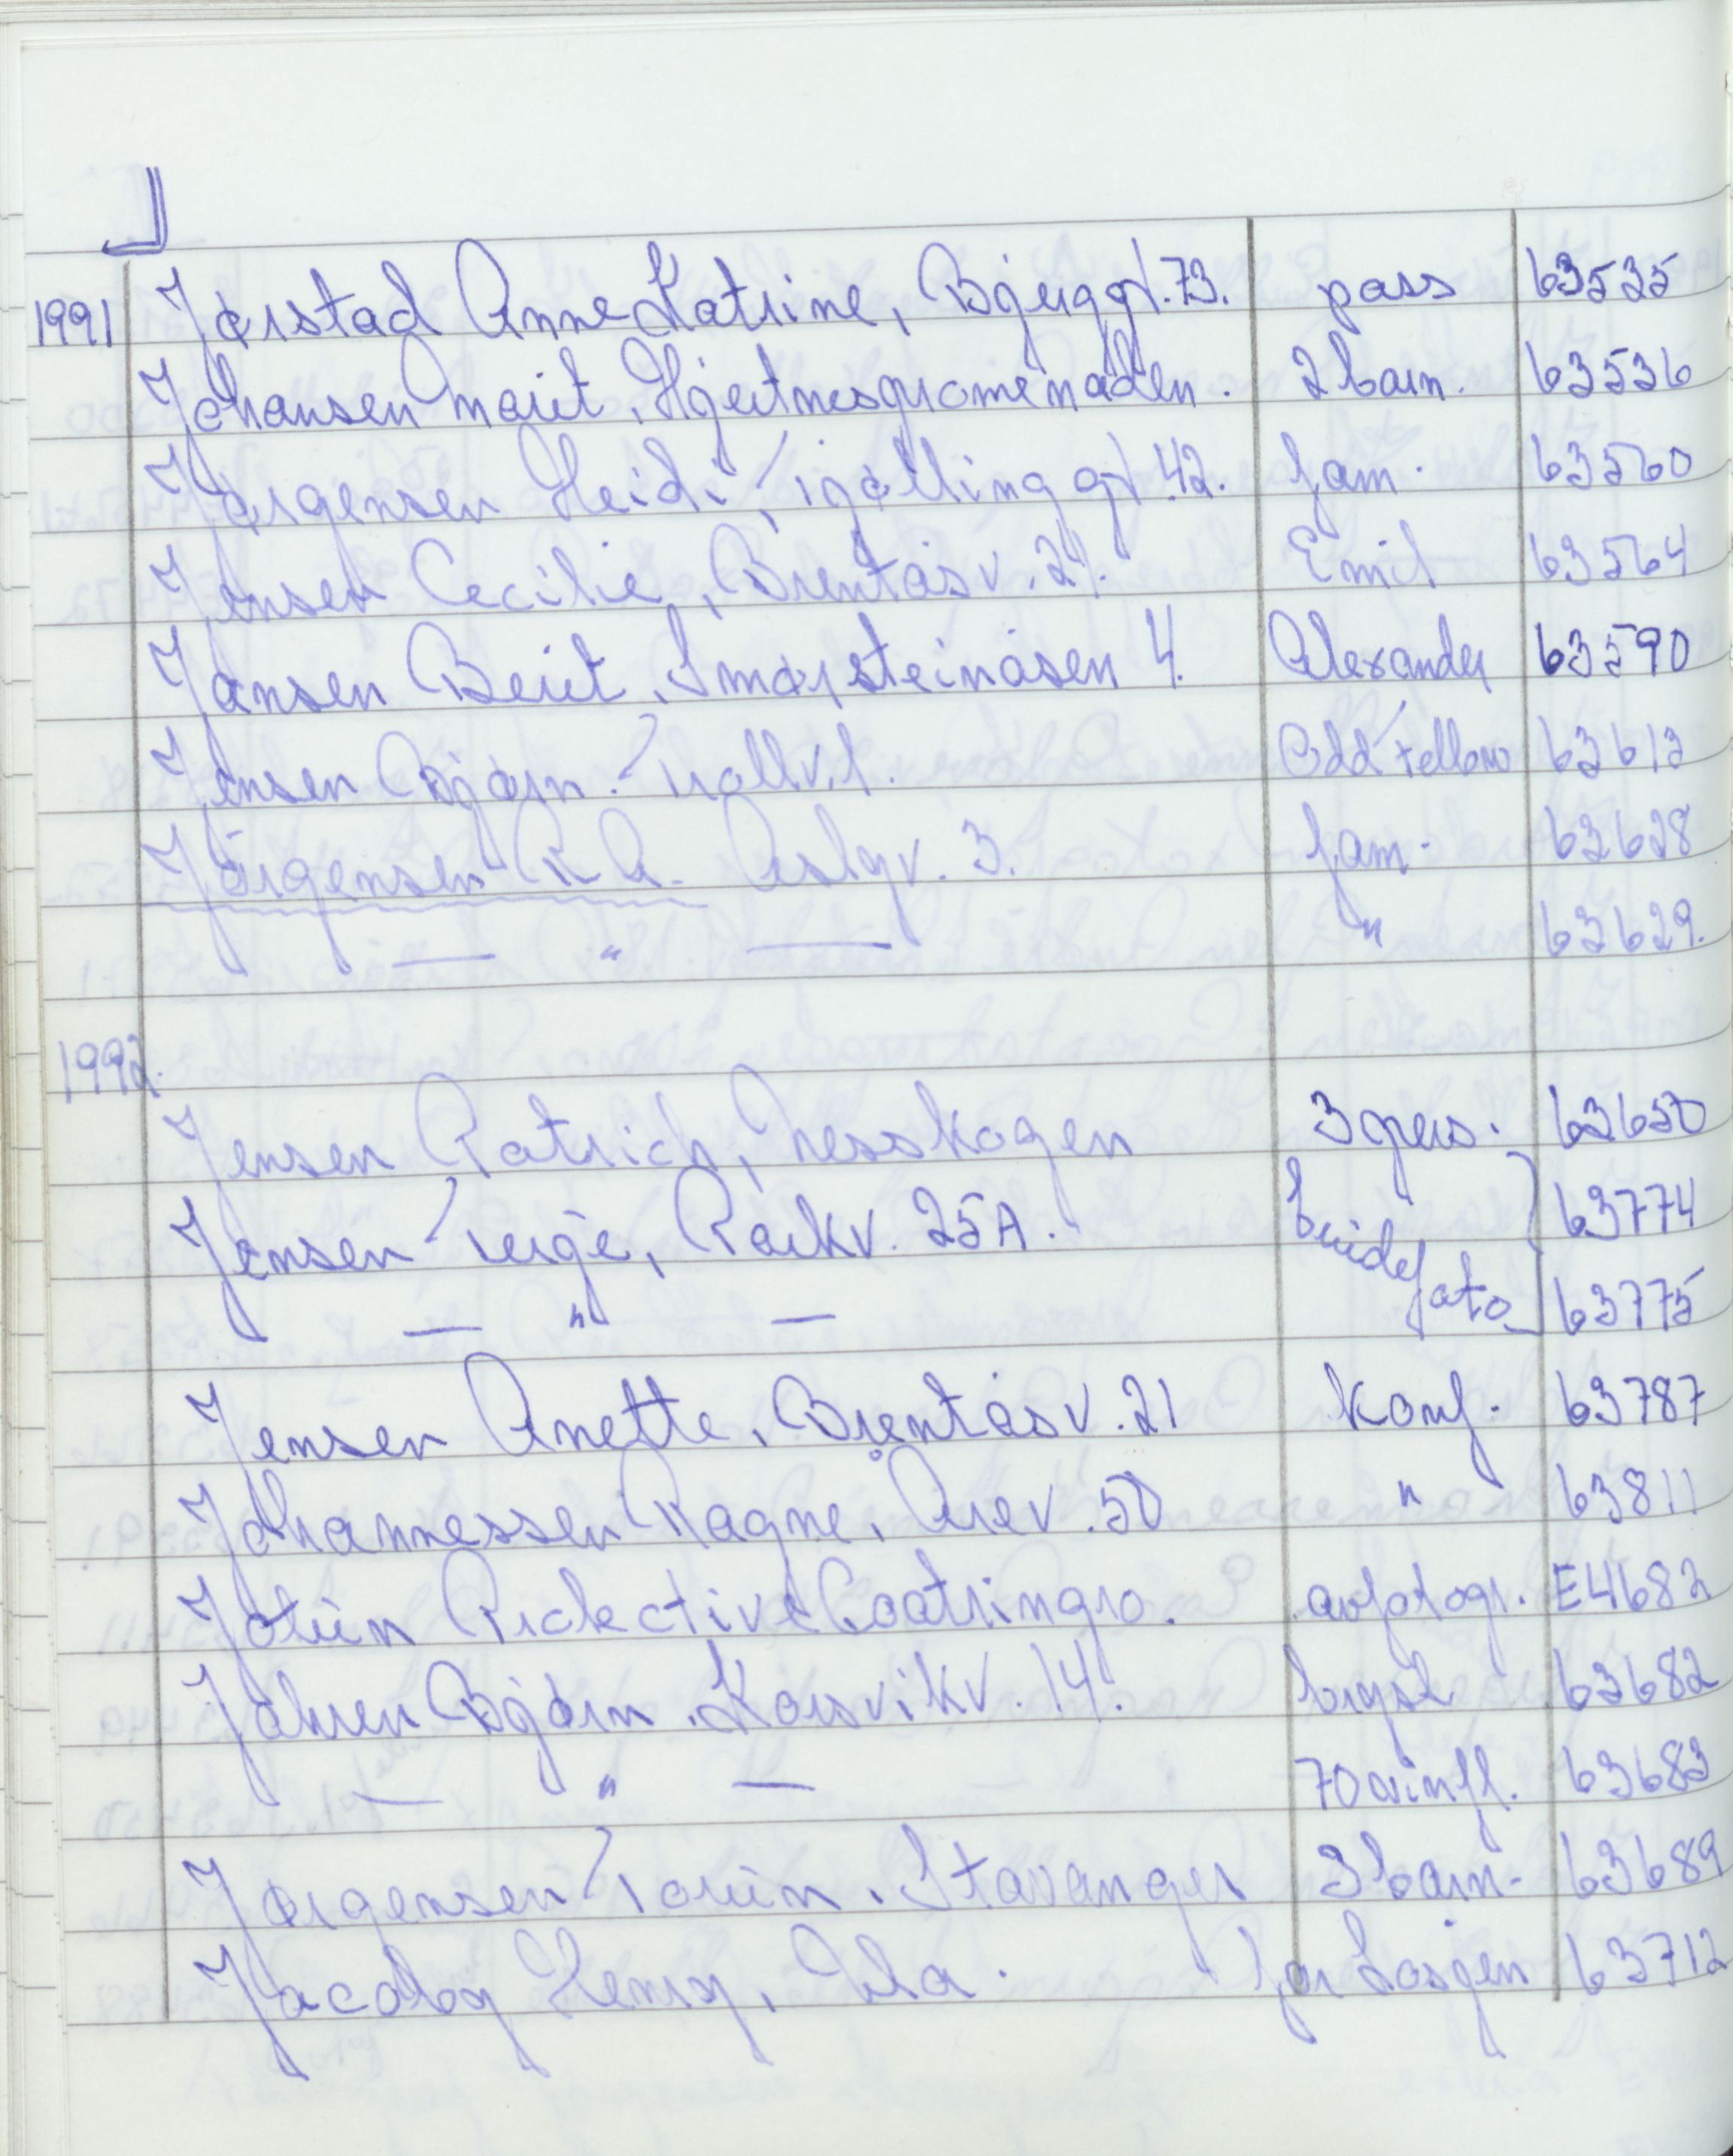 J
1991 Jørstad Anne Katrine, Bjerggt. 73. pass 63535
Johansen Marit, Hjertnespromenaden. 2 barn. 63536
Jørgensen Heidi, Tjøllinggt. 42. fam. 63560
Jensen Cecilie, Brentåsv. 21. Emil 63564
Jansen Berit, Smørsteinåsen 4. Alexander 63590
Jensen Bjørn. Trollv. 1. Odd Fellow 63612
Jörgensen R. A. Aslgv. 3. fam. 63628
— " — " 63629.
1992.
Jensen Patrich, Nesskogen 3 pers. 63650
Jensen Terje, Parkv. 25A. brude 63774
— " — foto 63775
Jensen Anette, Brentåsv. 21 konf. 63787
Johannessen Ragne, Årev. 50 " 63811
Jotun Protective Coatringro. avfotogr. E4682
Jahren Bjørn. Korsvikv. 14. bryst 63682
— " — 70 vinfl. 63683
Jørgensen Torun. Stavanger 3 barn. 63689
Jacoby Henry, Ula. for Losjen 63712